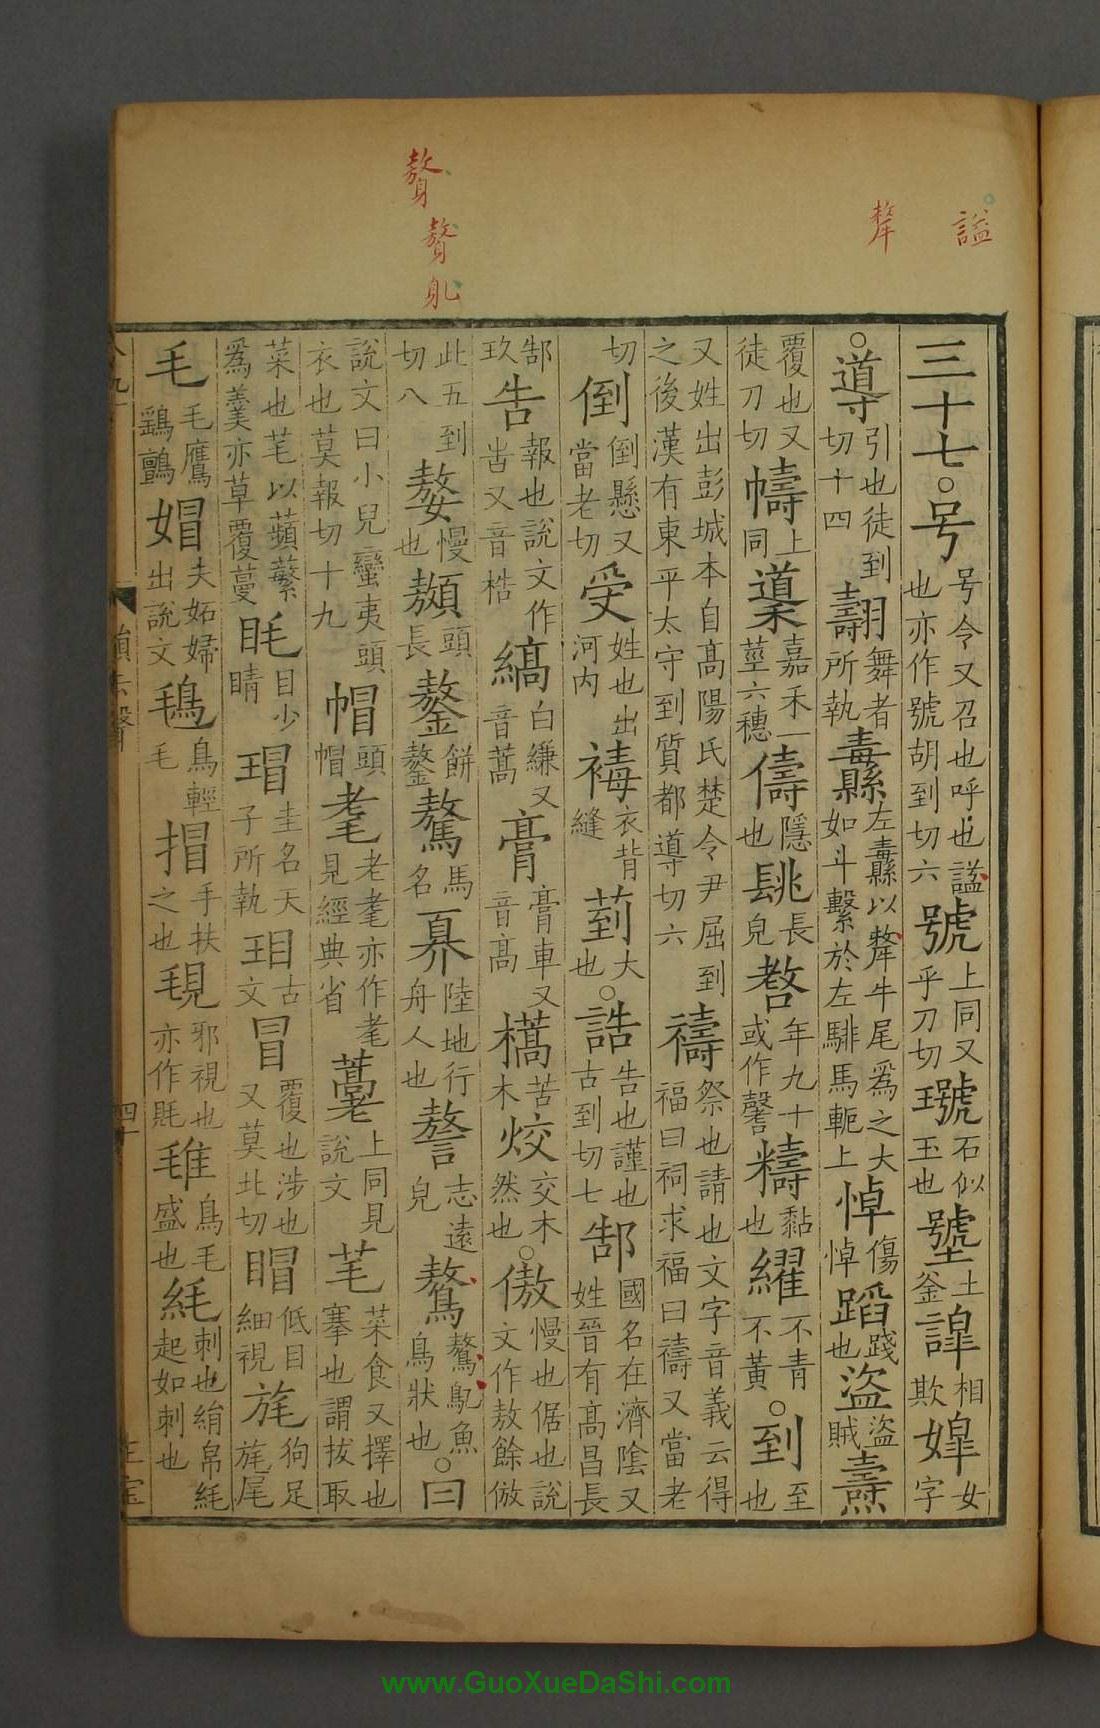 謚
犛
䫨
三十七。号号令又召也呼也謚也亦作號胡到切六號上同又乎刀切㺀石似玉也㙱土釜䛽相欺㜔女字
。導引也徒到切十四翿舞者所執纛左纛縣以犛牛尾爲之大如斗繫於左騑馬軛上悼傷悼蹈踐也盜盜賊燾
覆也又徒刀切幬上同䆃嘉禾一莖六穗儔隱也䠷長皃𦒷年九十或作䜵𥼽黏也纙不青不黃。到至也
又姓出彭城本自髙陽氏楚令尹屈到之後漢有東平太守到質都導切六禱祭也請也文字音義云得福曰祠求福曰禱又當老
切倒倒懸又當老切𠭥姓也出河内䙳衣背縫菿大也。誥告也謹也古到切七郜國名在濟陰又姓晉有髙昌長
郜玖告報也說文作吿又音梏縞白縑又音蒿膏膏車又音髙槁苦木烄交木然也。傲慢也倨也說文作敖餘倣
此五到切八嫯慢也䫨頭長鏊餅鏊驁馬名奡陸地行舟人也謷志遠皃䮯䲧魚鳥狀也。曰
說文曰小兒蠻夷頭衣也莫報切十九帽頭帽耄老耄亦作耄見經典省𦿉上同見說文芼菜食又擇也搴也謂拔取
菜也芼以蘋蘩爲羹亦草覆蔓眊目少睛瑁圭名天子所執玥古文冒覆也涉也又莫北切䀤低目細視旄狗足旄尾
毛毛鷹鷂鸇媢夫妬婦出說文䳕鳥輕毛㨱手扶之也覒邪視也亦作毷䧚鳥毛盛也𦀪刺也絹帛𦀪起如刺也
四十
www.GuoXueDaShi.com